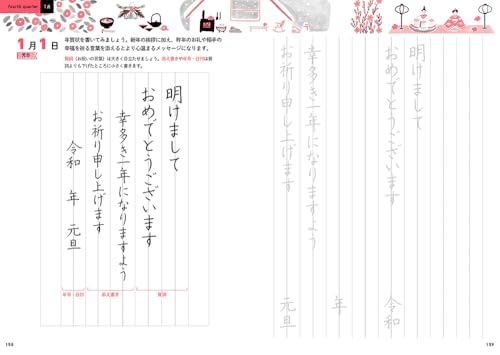 fourth quarter 1月
1月1日
元日
年賀状を書いてみましょう。新年の挨拶に加え、昨年のお礼や相手の
幸福を祈る言葉を添えるとより心温まるメッセージになります。
賀詞(お祝いの言葉)は大きく目立たせましょう。添え書きや年号・日付は賀
詞よりも下げたところに小さく書きます。
明けまして
おめでとうございます
幸多き一年になりますよう
お祈り申し上げます
令和 年 元旦
年号・日付
添え書き
賀詞
明けまして
おめでとうございます
幸多き一年になりますよう
お祈り申し上げます
令和
年
元旦
158
159